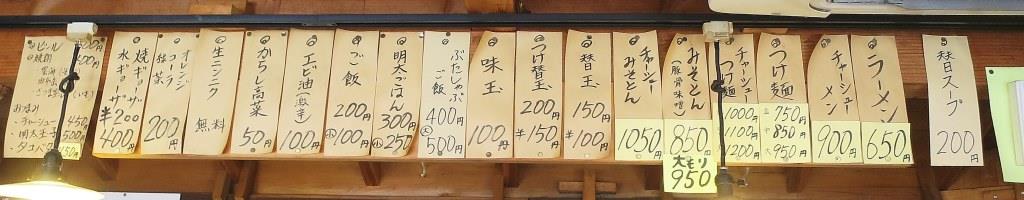 替日スープ
200円
ラーメン
650円
チャーシューメン
900円
つけ麺
並 750円
中 850円
大 950円
チャーシューつけ麺
1000円
1100円
1200円
みそとん
(豚骨味噌)
850円
大もり
950
チャーシューみそとん
1050円
替玉
150円
半100円
つけ替玉
200円
半150円
味玉
100円
ぶたしゃぶご飯
400円
大500円
明太ごはん
300円
小250円
ご飯
200円
小100円
エビ油(激辛)
100円
からし高菜
50円
生ニンニク
無料
オレンジ
コーラ
烏龍茶
200円
焼ギョーザ
水ギョーザ
¥200
400円
ビール 500円
焼酎 500円
おつまみ
・チャーシュー 450円
・明太子 500円